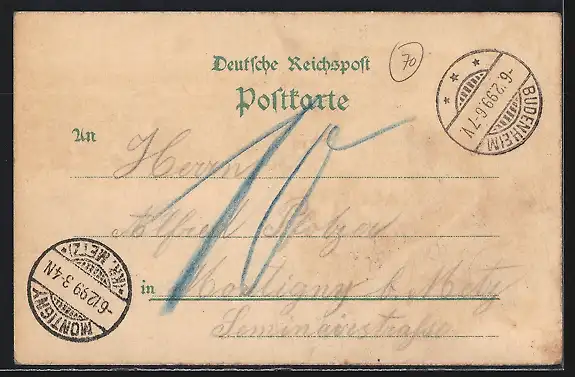 70
Deutsche Reichspost
Postkarte
BUDENHEIM
-6.12.99.6-7V.
An Herrn
10
Alfred
in Montigny b. Metz
Seminairstrasse
MONTIGNY
*(KR. METZ)*
-6.12.99 3-4N.